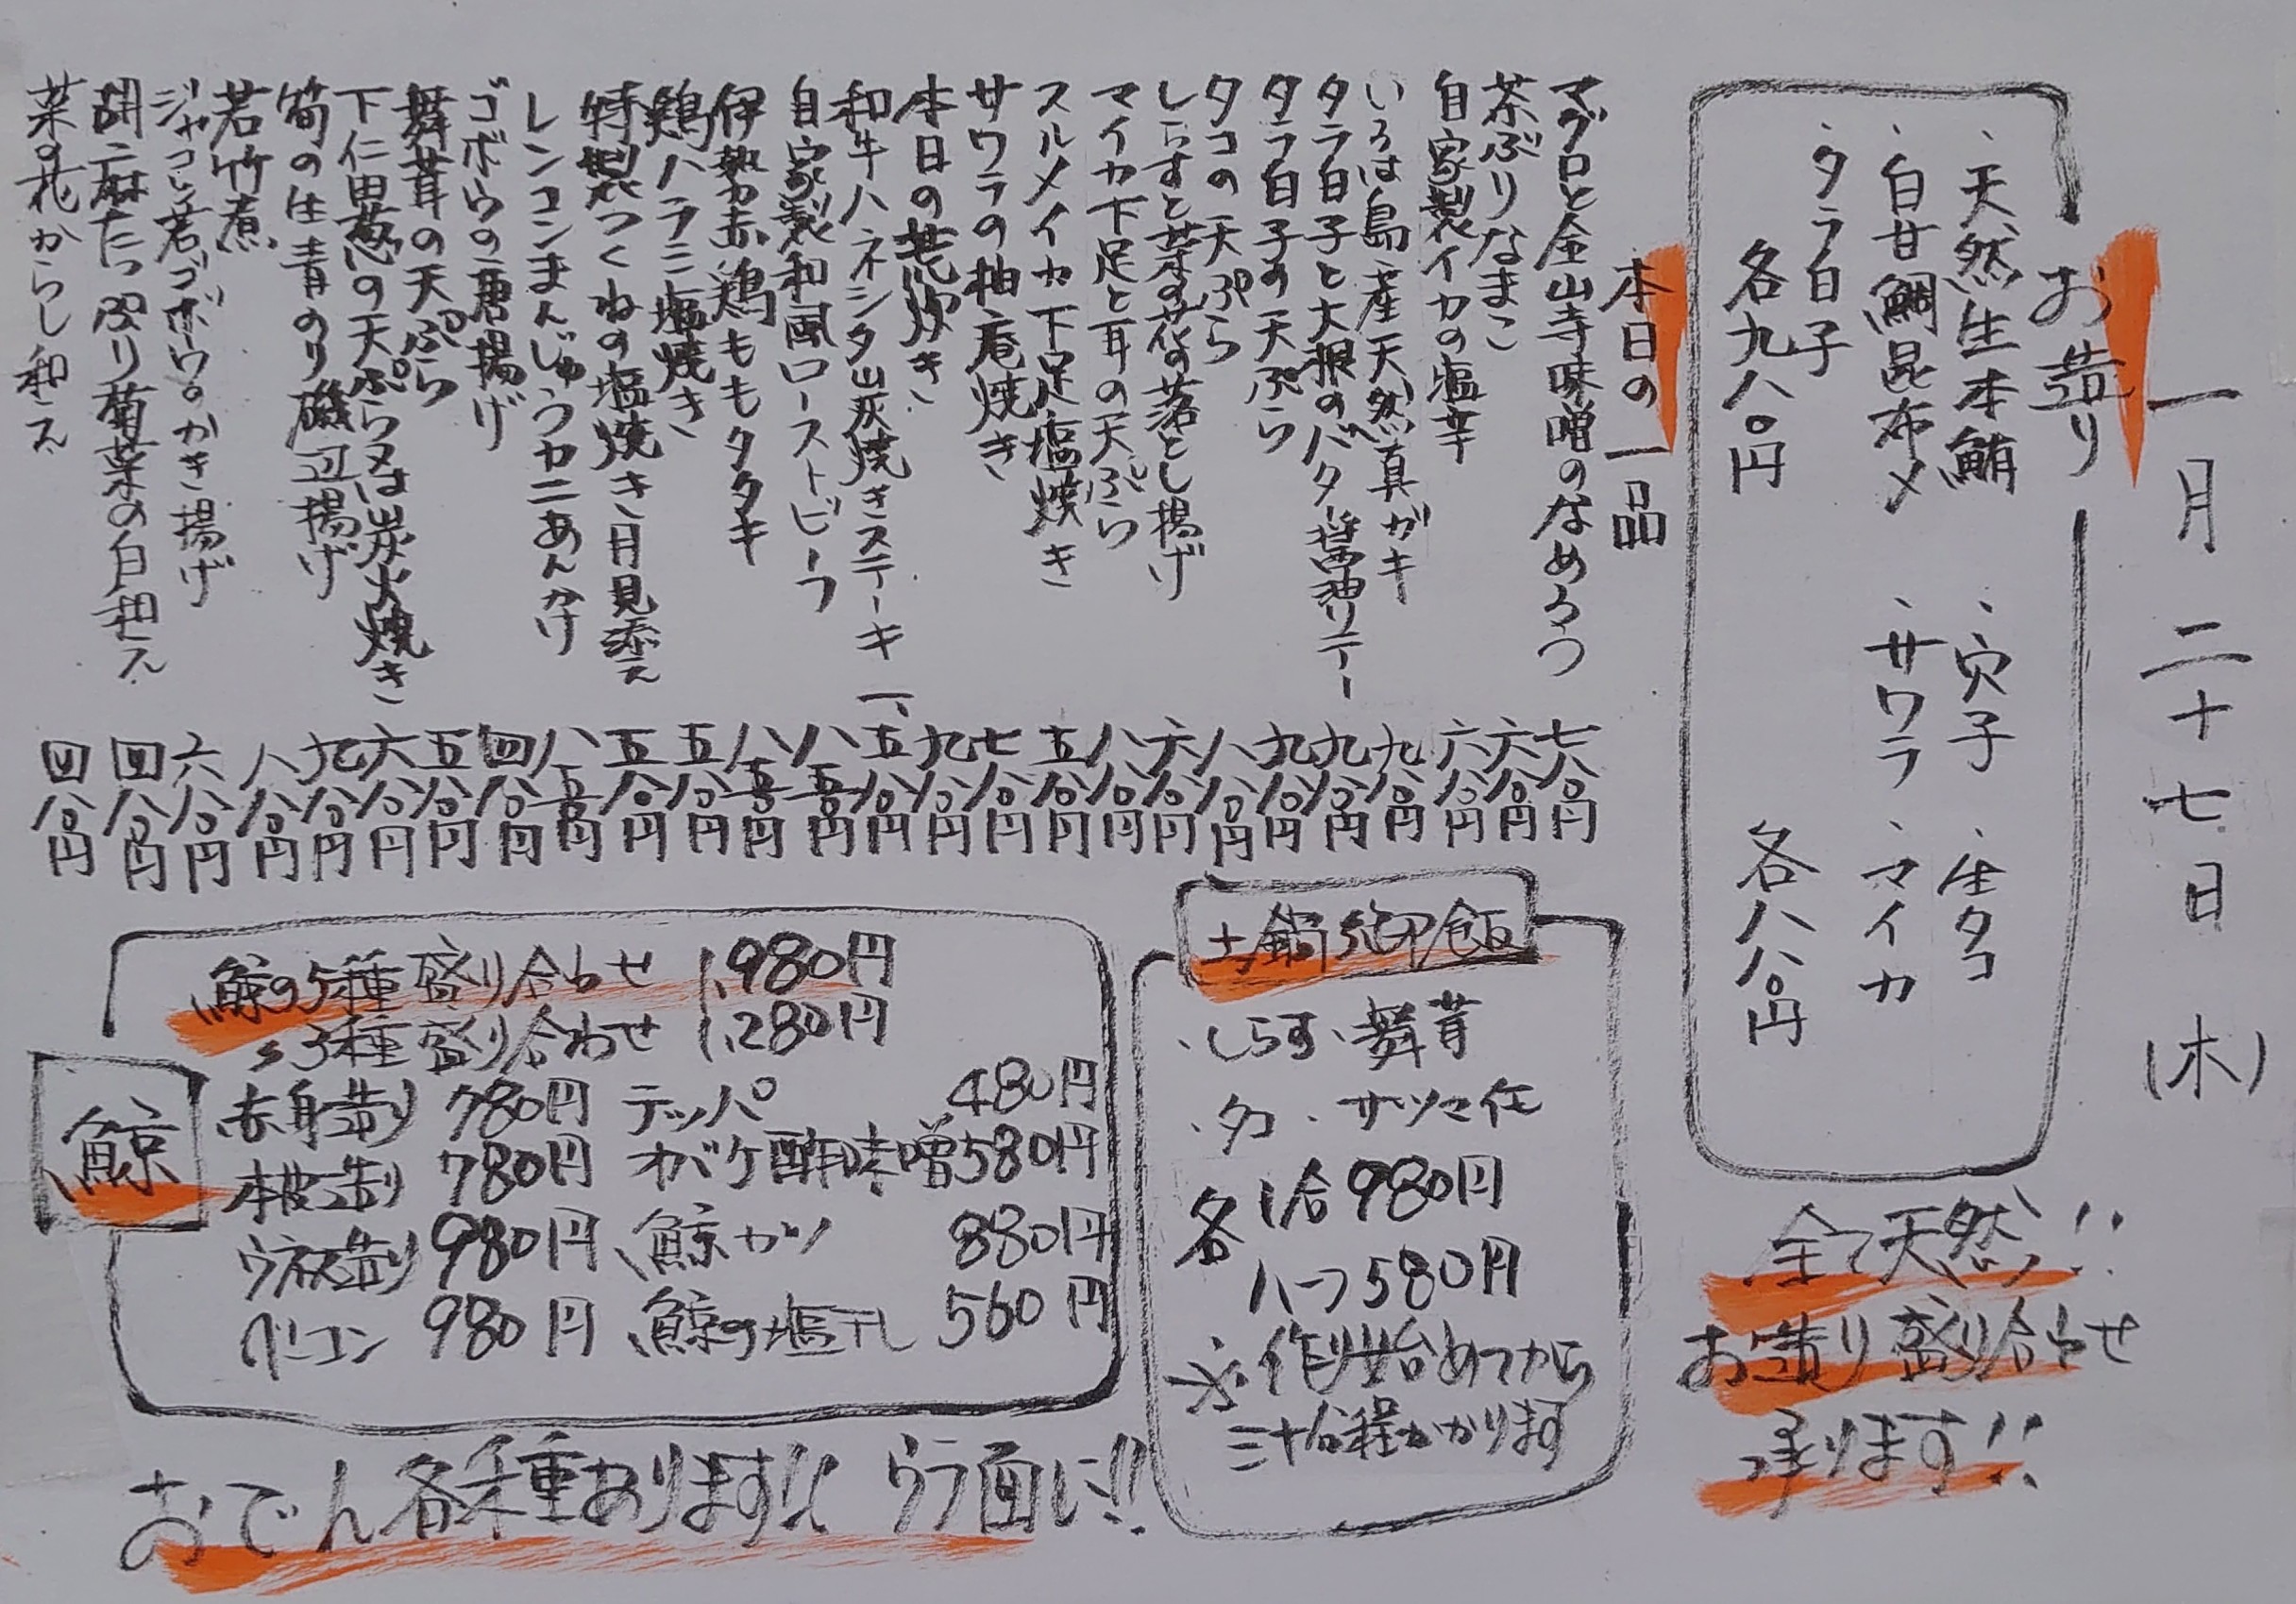 一月二十七日(木)
お造り
・天然生本鮪
・穴子
・生タコ
・白甘鯛昆布〆
・サワラ
・マイカ
・タラ白子
各九八〇円
各八八〇円
全て天然!!
お造り盛り合わせ
承ります!!
本日の一品
マグロと金山寺味噌のなめろう 七八〇円
茶ぶりなまこ 六八〇円
自家製イカの塩辛 六八〇円
いろは島産天然真ガキ 九八〇円
タラ白子と大根のバター醤油ソテー 九八〇円
タラ白子の天ぷら 九八〇円
タコの天ぷら 八八〇円
しらすと菜の花の落とし揚げ 六八〇円
マイカ下足と耳の天ぷら 八八〇円
スルメイカ下足塩焼き 五八〇円
サワラの柚庵焼き 七八〇円
本日の荒炊き 九八〇円
和牛ハネシタ炭焼きステーキ 一、五八〇円
自家製和風ローストビーフ 八五〇円
伊勢赤鶏ももタタキ 八五〇円
鶏ハラミ塩焼き 五八〇円
特製つくねの塩焼き月見添え 五八〇円
レンコンまんじゅうカニあんかけ 八五〇円
ゴボウの唐揚げ 四八〇円
舞茸の天ぷら 五八〇円
下仁田葱の天ぷら又は炭火焼き 六八〇円
筍の生青のり磯辺揚げ 九八〇円
若竹煮 八八〇円
ジャコと若ゴボウのかき揚げ 六八〇円
胡麻たっぷり菊菜の白和え 四八〇円
菜の花からし和え 四八〇円
土鍋御飯
・しらす・舞茸
・タコ・サツマ芋
各 1合980円
ハーフ580円
※作り始めてから
三十分程かかります
鯨
鯨の5種盛り合わせ 1,980円
〃3種盛り合わせ 1,280円
赤身造り 780円 テッパ 480円
本皮造り 780円 オバケ酢味噌 580円
ウネス造り 980円 鯨カツ 880円
ベーコン 980円 鯨の塩干し 560円
おでん各種あります!! ウラ面に!!